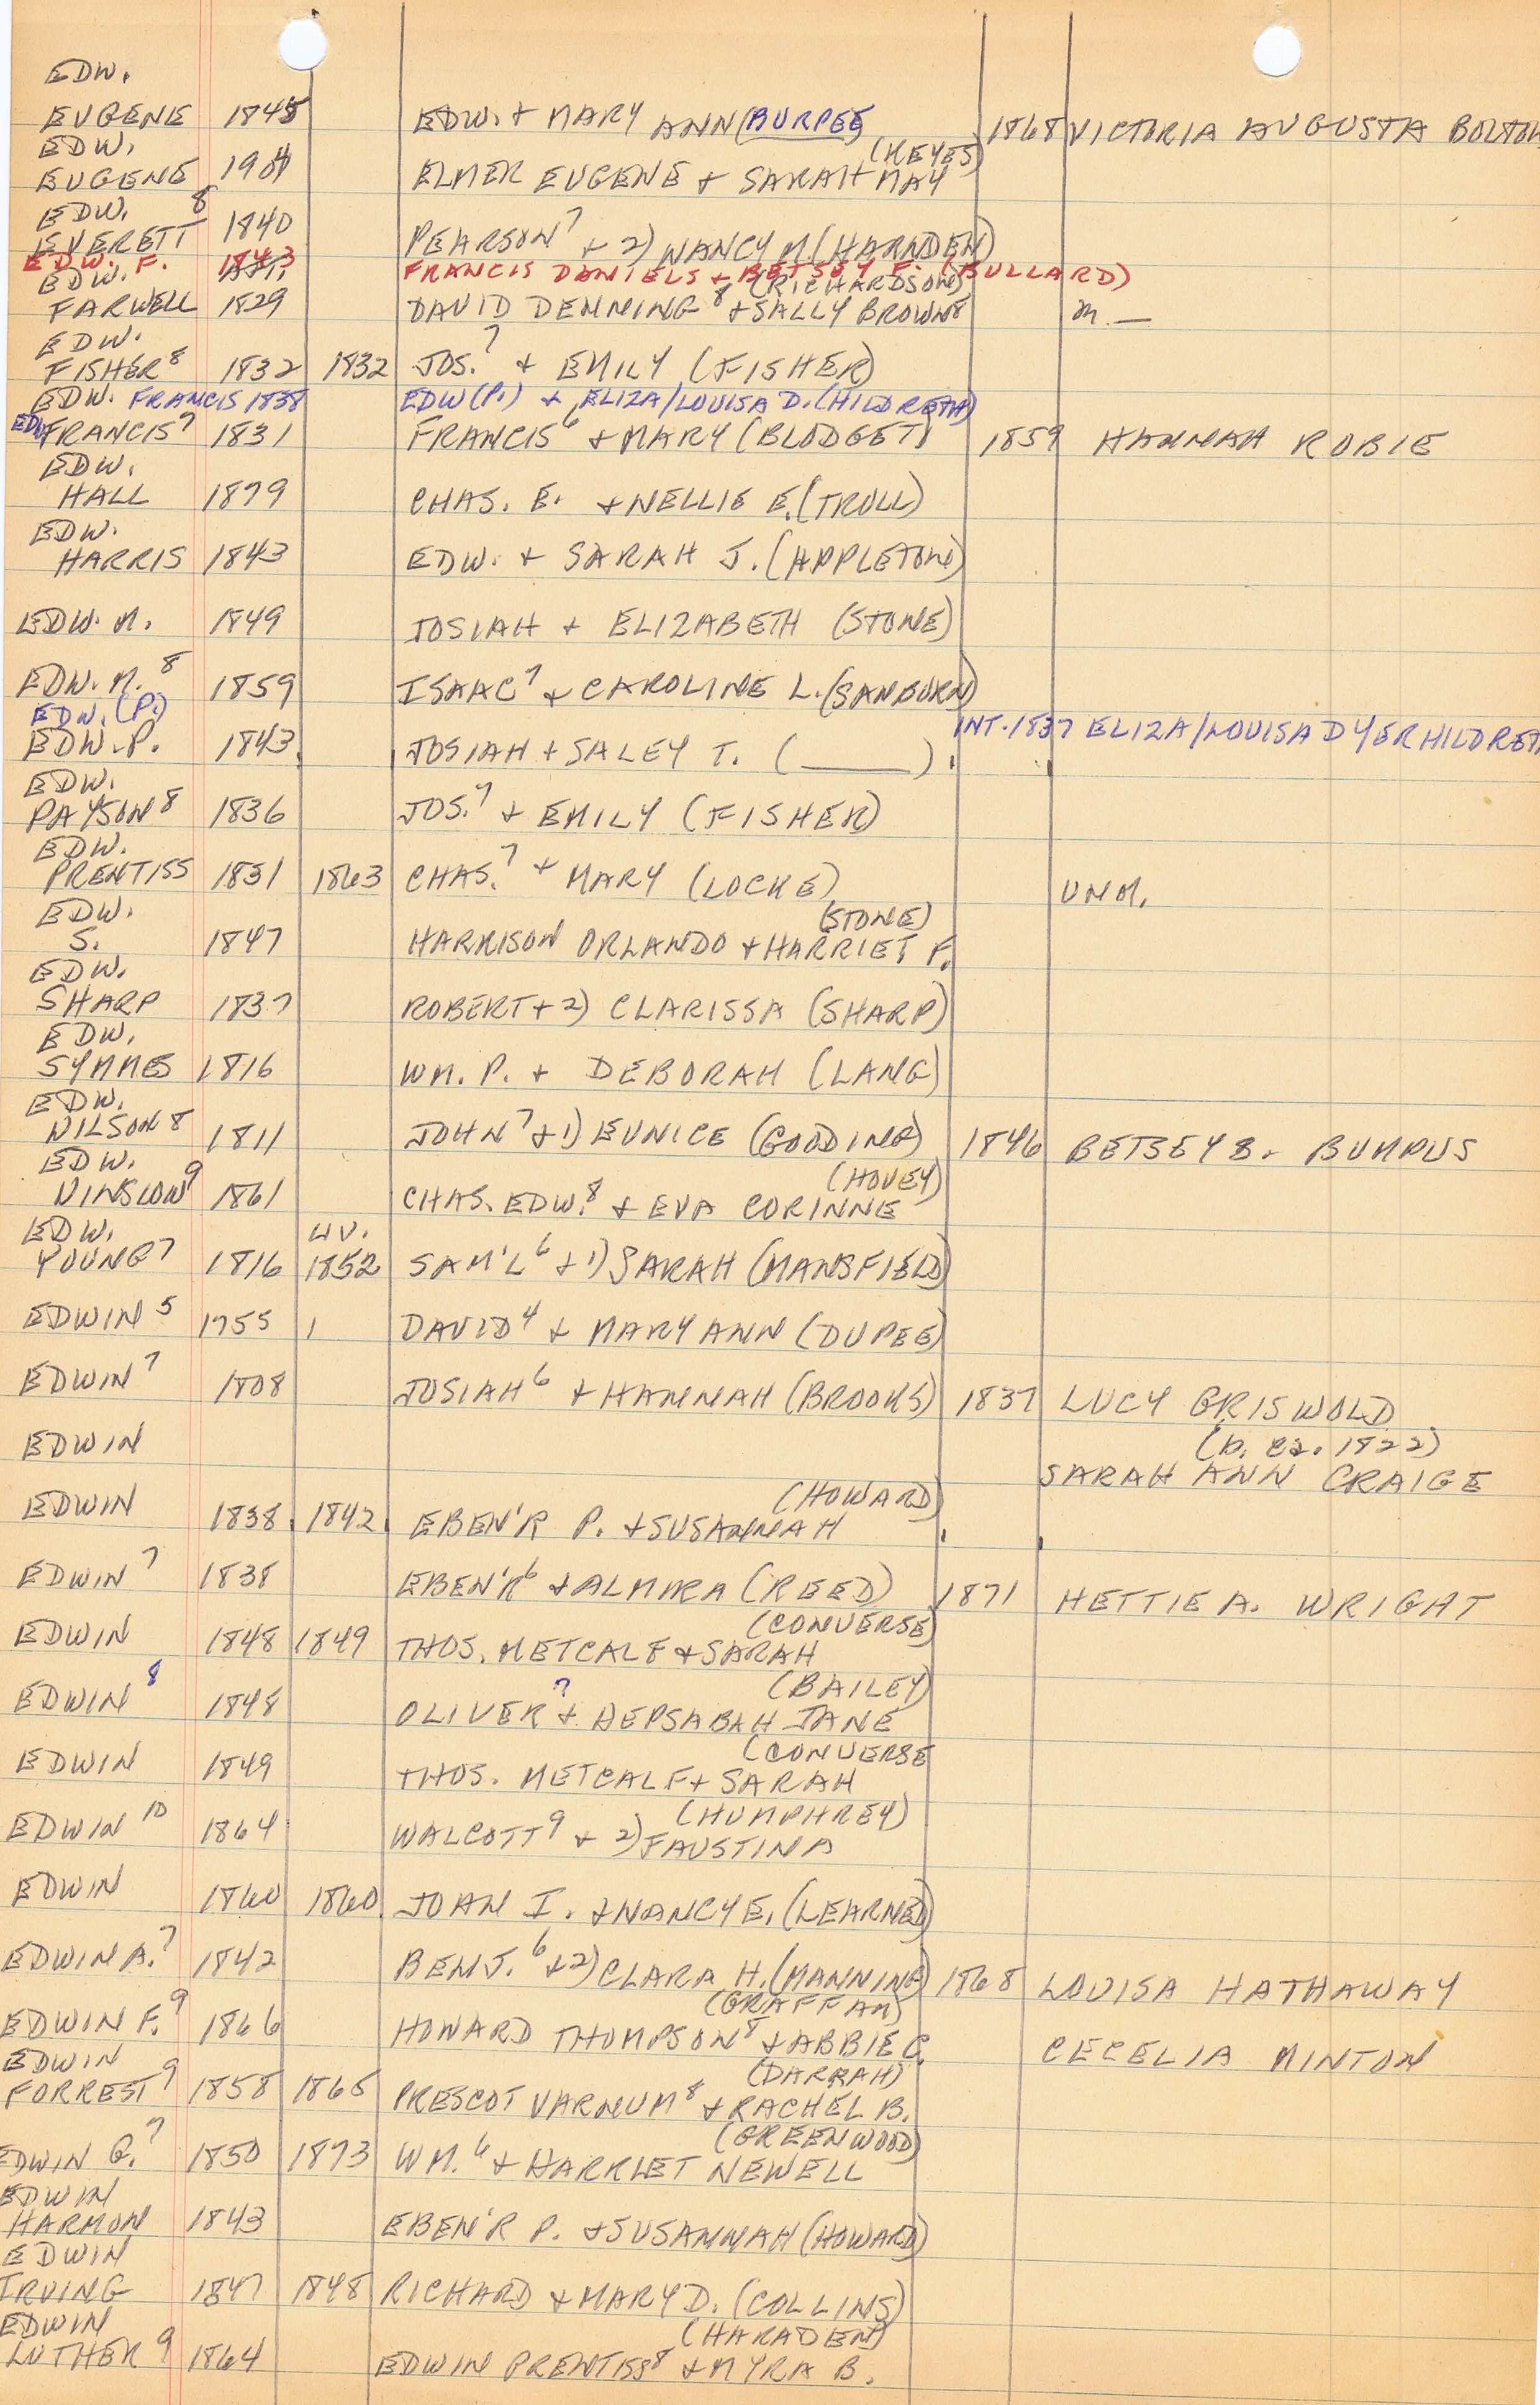 EDW.
EUGENE 1845 EDW. + MARY ANN (BURPEE) 1868 VICTORIA AUGUSTA BOLTON
EDW. (KEYES)
EUGENE 1904 ELMER EUGENE + SARAH MAY
EDW. 8
EVERETT 1840 PEARSON 7 + 2) NANCY M. (HARNDEN)
EDW. F. 1843 FRANCIS DANIELS + BETSEY F. (BULLARD)
EDW. (RICHARDSON)
FARWELL 1829 DAVID DENNING 8 + SALLY BROWN 8 M. —
EDW.
FISHER 8 1832 1832 JOS. 7 + EMILY (FISHER)
EDW. FRANCIS 1838 EDW (P.) + ELIZA/LOUISA D. (HILDRETH)
EDW. FRANCIS 7 1831 FRANCIS 6 + MARY (BLODGET) 1859 HANNAH ROBIE
EDW.
HALL 1879 CHAS. E. + NELLIE E. (TROLL)
EDW.
HARRIS 1843 EDW. + SARAH J. (APPLETON)
EDW. M. 1849 JOSIAH + ELIZABETH (STONE)
EDW. M. 8 1859 ISAAC 7 + CAROLINE L. (SANBURN)
EDW. (P.) INT. 1837 ELIZA/LOUISA DYER HILDRETH
EDW. P. 1843 JOSIAH + SALEY T. ( ____ )
EDW.
PAYSON 8 1836 JOS. 7 + EMILY (FISHER)
EDW.
PRENTISS 1831 1863 CHAS. 7 + MARY (LOCKE) UNM.
EDW. (STONE)
S. 1847 HARRISON ORLANDO + HARRIET F.
EDW.
SHARP 1837 ROBERT + 2) CLARISSA (SHARP)
EDW.
SYMMES 1816 WM. P. + DEBORAH (LANG)
EDW.
WILSON 8 1811 JOHN 7 + 1) EUNICE (GOODING) 1846 BETSEY B. BUMPUS
EDW. (HOVEY)
WINSLOW 9 1861 CHAS. EDW. 8 + EVA CORINNE
EDW. LIV.
YOUNG 7 1816 1852 SAM'L 6 + 1) SARAH (MANSFIELD)
EDWIN 5 1755 DAVID 4 + MARY ANN (DUPEE)
EDWIN 7 1808 JOSIAH 6 + HANNAH (BROOKS) 1837 LUCY GRISWOLD
EDWIN (b. ca. 1822)
SARAH ANN CRAIGE
EDWIN (HOWARD)
1838 1842 EBEN'R P. + SUSANNAH
EDWIN 7 1838 EBEN'R 6 + ALMIRA (REED) 1871 HETTIE A. WRIGHT
(CONVERSE)
EDWIN 1848 1849 THOS. METCALF + SARAH
(BAILEY)
EDWIN 8 1848 OLIVER 7 + HEPSABAH JANE
(CONVERSE
EDWIN 1849 THOS. METCALF + SARAH
(HUMPHREY)
EDWIN 10 1864 WALCOTT 9 + 2) FAUSTINA
EDWIN 1860 1860 JOHN I. + NANCY E. (LEARNED)
EDWIN A. 7 1842 BENJ. 6 + 2) CLARA H. (MANNING) 1868 LOUISA HATHAWAY
(GRAFFAM)
EDWIN F. 9 1866 HOWARD THOMPSON 8 + ABBIE C. CECELIA MINTON
EDWIN (DARRAH)
FORREST 9 1858 1865 PRESCOT VARNUM 8 + RACHEL B.
(GREENWOOD)
EDWIN G. 7 1850 1873 WM. 6 + HARRIET NEWELL
EDWIN
HARMON 1843 EBEN'R P. + SUSANNAH (HOWARD)
EDWIN
IRVING 1847 1848 RICHARD + MARY D. (COLLINS)
EDWIN (HARADEN)
LUTHER 9 1864 EDWIN PRENTISS 8 + MYRA B.